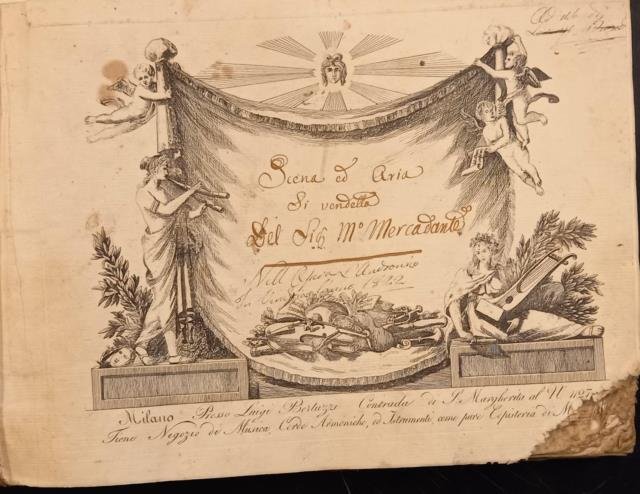 Scena ed Aria
Di vendetta
Del Sig. Mº Mercadante
Nell Opera L'Andronico
In Venezia l'anno 1822
Milano Presso Luigi Bertuzzi Contrada di S. Margherita al Nº 1127
Tiene Negozio di Musica, Corde Armoniche, ed Istrumenti come pure Copisteria di